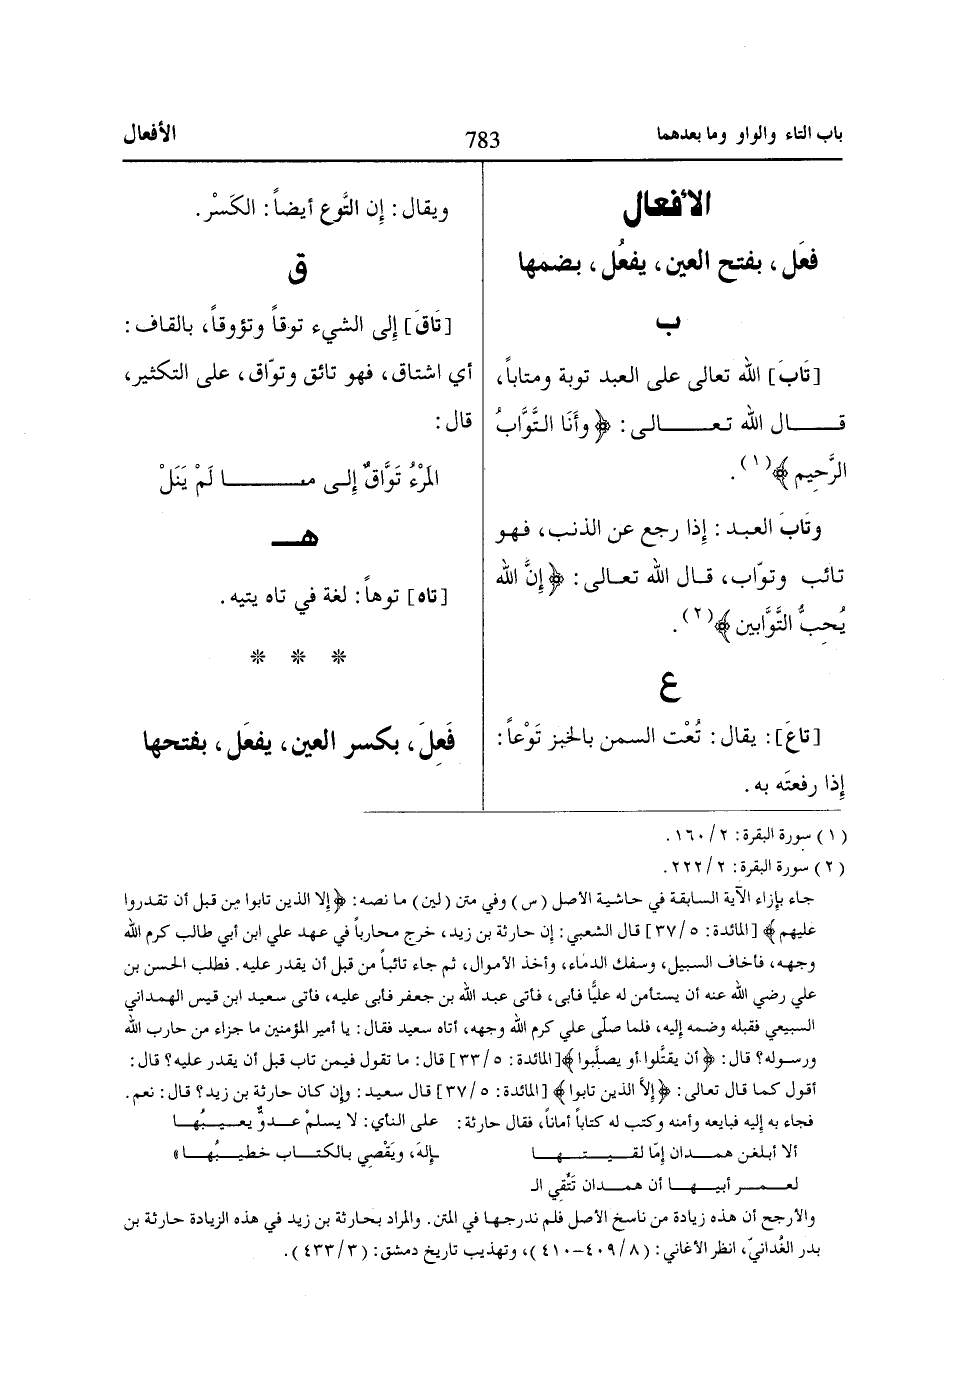 باب التاء والواو وما بعدهما
783
الأفعال
الأفعال
فعَل، بفتح العين، يفعُل، بضمها
ب
[تَابَ] الله تعالى على العبد توبة ومتاباً،
قـــال الله تـعـــالى: ﴿وأَنَا التَّوَّابُ
الرَّحِيم﴾(١).
وتَابَ العبد: إذا رجع عن الذنب، فهو
تائب وتوّاب، قـال الله تعـالى: ﴿إِنَّ الله
يُحِبُّ التَّوَّابين﴾(٢).
ع
[تاعَ]: يقال: تُعْت السمن بالخبز تَوْعاً:
إذا رفعتَه به.
ويقال: إن التَّوع أيضاً: الكَسْر.
ق
[تَاقَ] إلى الشيء توقاً وتؤوقاً، بالقاف:
أي اشتاق، فهو تائق وتوّاق، على التكثير،
قال:
المَرْءُ تَوَّاقٌ إلى مـــا لَمْ يَنَلْ
هـ
[تاه] توهاً: لغة في تاه يتيه.
* * *
فَعِلَ، بكسر العين، يفعَل، بفتحها
(١) سورة البقرة: ٢/ ١٦٠.
(٢) سورة البقرة: ٢/ ٢٢٢.
جاء بإزاء الآية السابقة في حاشية الأصل (س) وفي متن (لين) ما نصه: ﴿إلا الذين تابوا مِن قبل أن تقدروا
عليهم﴾ [المائدة: ٥/ ٣٧] قال الشعبي: إن حارثة بن زيد، خرج محارباً في عهد علي ابن أبي طالب كرم الله
وجهه، فأخاف السبيل، وسفك الدماء، وأخذ الأموال، ثم جاء تائباً من قبل أن يقدر عليه. فطلب الحسن بن
علي رضي الله عنه أن يستأمن له عليًّا فأبى، فأتى عبد الله بن جعفر فأبى عليه، فأتى سعيد ابن قيس الهمداني
السبيعي فقبله وضمه إليه، فلما صلّى علي كرم الله وجهه، أتاه سعيد فقال: يا أمير المؤمنين ما جزاء من حارب الله
ورسوله؟ قال: ﴿أن يقتَّلوا أو يصلَّبوا﴾[المائدة: ٥/ ٣٣] قال: ما تقول فيمن تاب قبل أن يقدر عليه؟ قال:
أقول كما قال تعالى: ﴿إلاَّ الذين تابوا﴾ [المائدة: ٥/ ٣٧] قال سعيد: وإن كان حارثة بن زيد؟ قال: نعم.
فجاء به إليه فبايعه وأمنه وكتب له كتاباً أماناً، فقال حارثة: على النأي: لا يسلمْ عـدوٌّ يعـيـبُهـا
ألا أبلغن همـدان إمّا لقـيـتـهـا إلهَ، ويَقْضِي بالكتـاب خطيبُهـا»
لعـمـر أبيـهـا أن همـدان تَتَّقِي الـ
والأرجح أن هذه زيادة من ناسخ الأصل فلم ندرجها في المتن. والمراد بحارثة بن زيد في هذه الزيادة حارثة بن
بدر الغُداني، انظر الأغاني: (٨/ ٤٠٩-٤١٠)، وتهذيب تاريخ دمشق: (٣/ ٤٣٣).